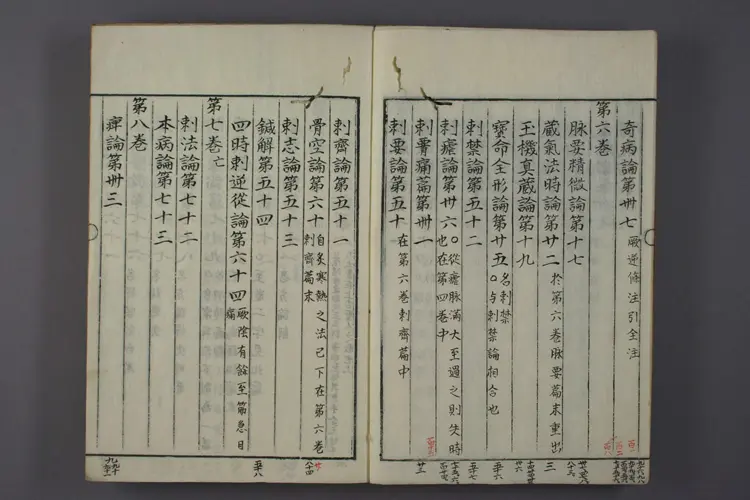 奇病論第卅七 厥逆條注引全注
第六巻
脉要精微論第十七
蔵氣法時論第廿二 於第六巻脉要篇末重出
玉機真蔵論第十九
寳命全形論第廿五 名刺禁 〇与刺禁論相合也
刺禁論第五十二
刺瘧論第卅六 〇從瘧脉満大至過之則失時也在第四巻中
刺腰痛篇第卌一
刺要論第五十 在第六巻刺齊篇中
刺齊論第五十一
骨空論第六十 自灸寒熱之法已下在第六巻刺齊篇末
刺志論第五十三
鍼解第五十四
四時刺逆從論第六十四 厥陰有餘至筋急目痛
第七巻亡
刺法論第七十二
本病論第七十三
第八巻
痺論第卌三